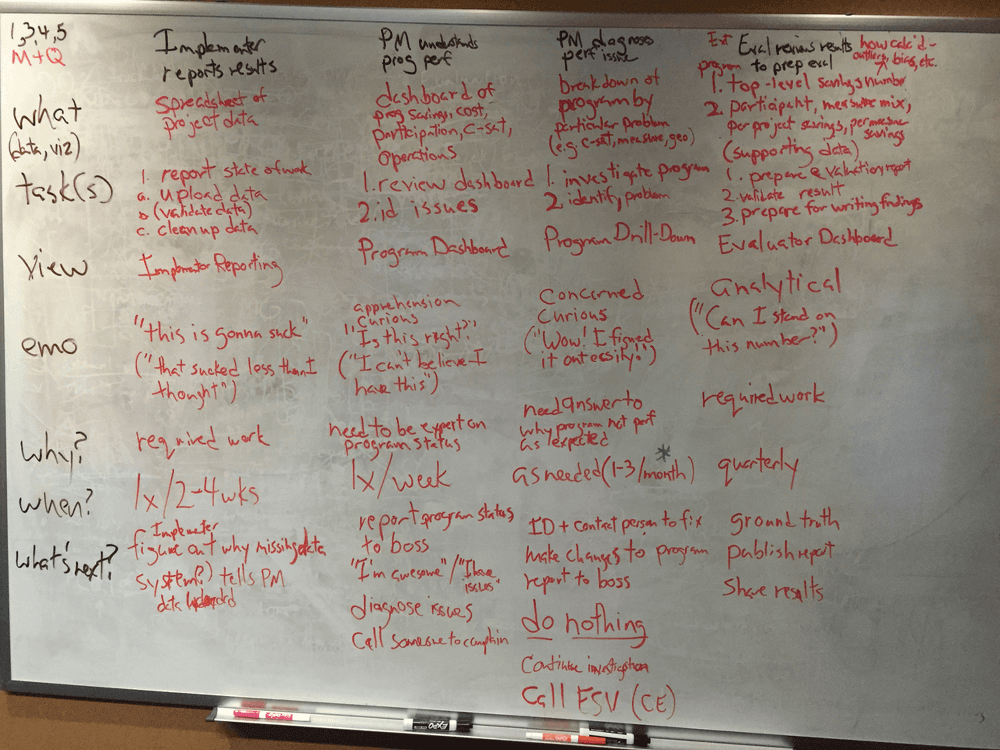 1,3,4,5
M+Q
Implementer
reports results
PM understands
prog perf
PM diagnoses
perf issue
Ext Eval reviews results
program to prep eval
how calc'd -
outliers, bias, etc.
what
(data, viz)
spreadsheet of
project data
dashboard of
prog savings, cost,
participation, C-sat,
operations
breakdown of
program by
particular problem
(e.g. c-sat, measure, geo)
1. top-level savings number
2. participant, measure mix,
per project savings, per measure
savings
(supporting data)
task(s)
1. report state of work
a. upload data
b. (validate data)
c. clean up data
1. review dashboard
2. id issues
1. investigate program
2. identify problem
1. prepare evaluation report
2. validate result
3. prepare for writing findings
view
Implementor Reporting
Program Dashboard
Program Drill-Down
Evaluator Dashboard
emo
"this is gonna suck"
("that sucked less than I
thought")
apprehension
curious
"Is this right?"
("I can't believe I
have this")
Concerned
Curious
("Wow! I figured
it out easily!")
analytical
("Can I stand on
this number?")
why?
required work
need to be expert on
program status
need answer to
why program not perf
as expected
required work
when?
1x/2-4wks
1x/week
as needed (1-3/month) *
quarterly
what's next?
Implementer
figure out why missing data
system(?) tells PM
data
report program status
to boss
"I'm awesome"/"I have
issues"
diagnose issues
call someone to complain
ID + contact person to fix
make changes to program
report to boss
do nothing
Continue investigation
Call ESV (CE)
ground truth
publish report
Share results
EXPO